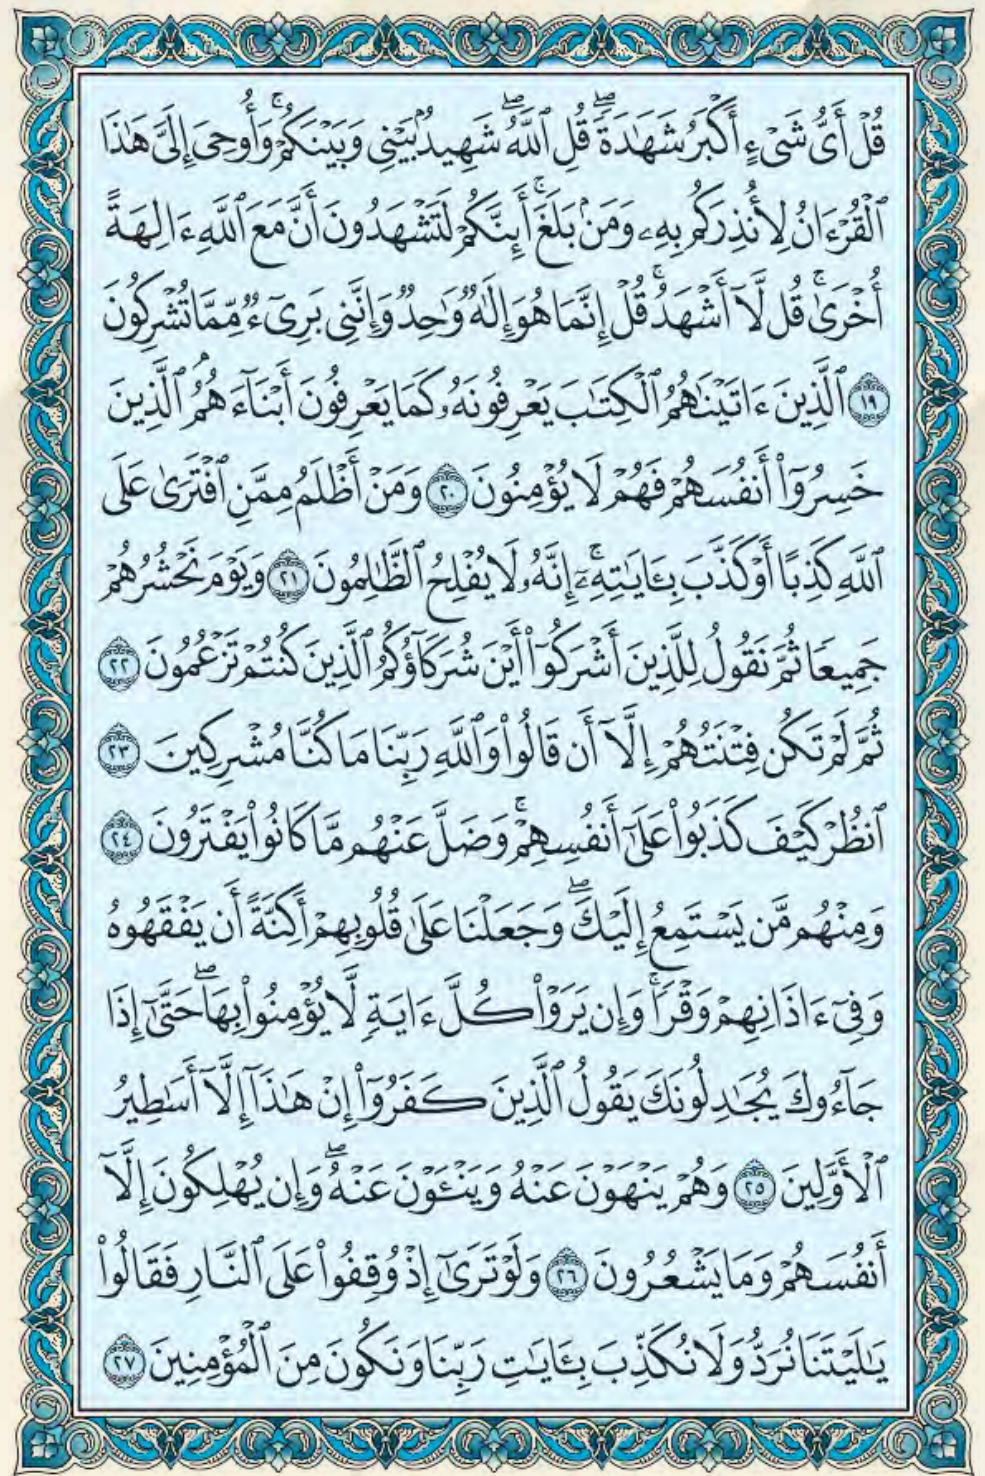 قُلْ أَىُّ شَىْءٍ أَكْبَرُ شَهَـٰدَةً ۖ قُلِ ٱللَّهُ ۖ شَهِيدُۢ بَيْنِى وَبَيْنَكُمْ ۚ وَأُوحِىَ إِلَىَّ هَـٰذَا
ٱلْقُرْءَانُ لِأُنذِرَكُم بِهِۦ وَمَنۢ بَلَغَ ۚ أَئِنَّكُمْ لَتَشْهَدُونَ أَنَّ مَعَ ٱللَّهِ ءَالِهَةً
أُخْرَىٰ ۚ قُل لَّآ أَشْهَدُ ۚ قُلْ إِنَّمَا هُوَ إِلَـٰهٌ وَٰحِدٌ وَإِنَّنِى بَرِىٓءٌ مِّمَّا تُشْرِكُونَ
١٩ ٱلَّذِينَ ءَاتَيْنَـٰهُمُ ٱلْكِتَـٰبَ يَعْرِفُونَهُۥ كَمَا يَعْرِفُونَ أَبْنَآءَهُمُ ۘ ٱلَّذِينَ
خَسِرُوٓا۟ أَنفُسَهُمْ فَهُمْ لَا يُؤْمِنُونَ ٢٠ وَمَنْ أَظْلَمُ مِمَّنِ ٱفْتَرَىٰ عَلَى
ٱللَّهِ كَذِبًا أَوْ كَذَّبَ بِـَٔايَـٰتِهِۦٓ ۗ إِنَّهُۥ لَا يُفْلِحُ ٱلظَّـٰلِمُونَ ٢١ وَيَوْمَ نَحْشُرُهُمْ
جَمِيعًا ثُمَّ نَقُولُ لِلَّذِينَ أَشْرَكُوٓا۟ أَيْنَ شُرَكَآؤُكُمُ ٱلَّذِينَ كُنتُمْ تَزْعُمُونَ ٢٢
ثُمَّ لَمْ تَكُن فِتْنَتُهُمْ إِلَّآ أَن قَالُوا۟ وَٱللَّهِ رَبِّنَا مَا كُنَّا مُشْرِكِينَ ٢٣
ٱنظُرْ كَيْفَ كَذَبُوا۟ عَلَىٰٓ أَنفُسِهِمْ ۚ وَضَلَّ عَنْهُم مَّا كَانُوا۟ يَفْتَرُونَ ٢٤
وَمِنْهُم مَّن يَسْتَمِعُ إِلَيْكَ ۖ وَجَعَلْنَا عَلَىٰ قُلُوبِهِمْ أَكِنَّةً أَن يَفْقَهُوهُ
وَفِىٓ ءَاذَانِهِمْ وَقْرًا ۚ وَإِن يَرَوْا۟ كُلَّ ءَايَةٍ لَّا يُؤْمِنُوا۟ بِهَا ۖ حَتَّىٰٓ إِذَا
جَآءُوكَ يُجَـٰدِلُونَكَ يَقُولُ ٱلَّذِينَ كَفَرُوٓا۟ إِنْ هَـٰذَآ إِلَّآ أَسَـٰطِيرُ
ٱلْأَوَّلِينَ ٢٥ وَهُمْ يَنْهَوْنَ عَنْهُ وَيَنْـَٔوْنَ عَنْهُ ۖ وَإِن يُهْلِكُونَ إِلَّآ
أَنفُسَهُمْ وَمَا يَشْعُرُونَ ٢٦ وَلَوْ تَرَىٰٓ إِذْ وُقِفُوا۟ عَلَى ٱلنَّارِ فَقَالُوا۟
يَـٰلَيْتَنَا نُرَدُّ وَلَا نُكَذِّبَ بِـَٔايَـٰتِ رَبِّنَا وَنَكُونَ مِنَ ٱلْمُؤْمِنِينَ ٢٧